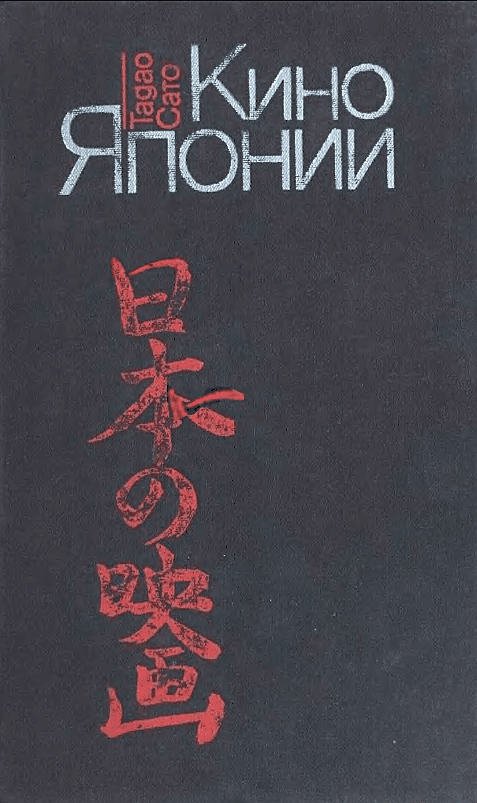 Тадао
Сато
Кино
Японии
日本の映画